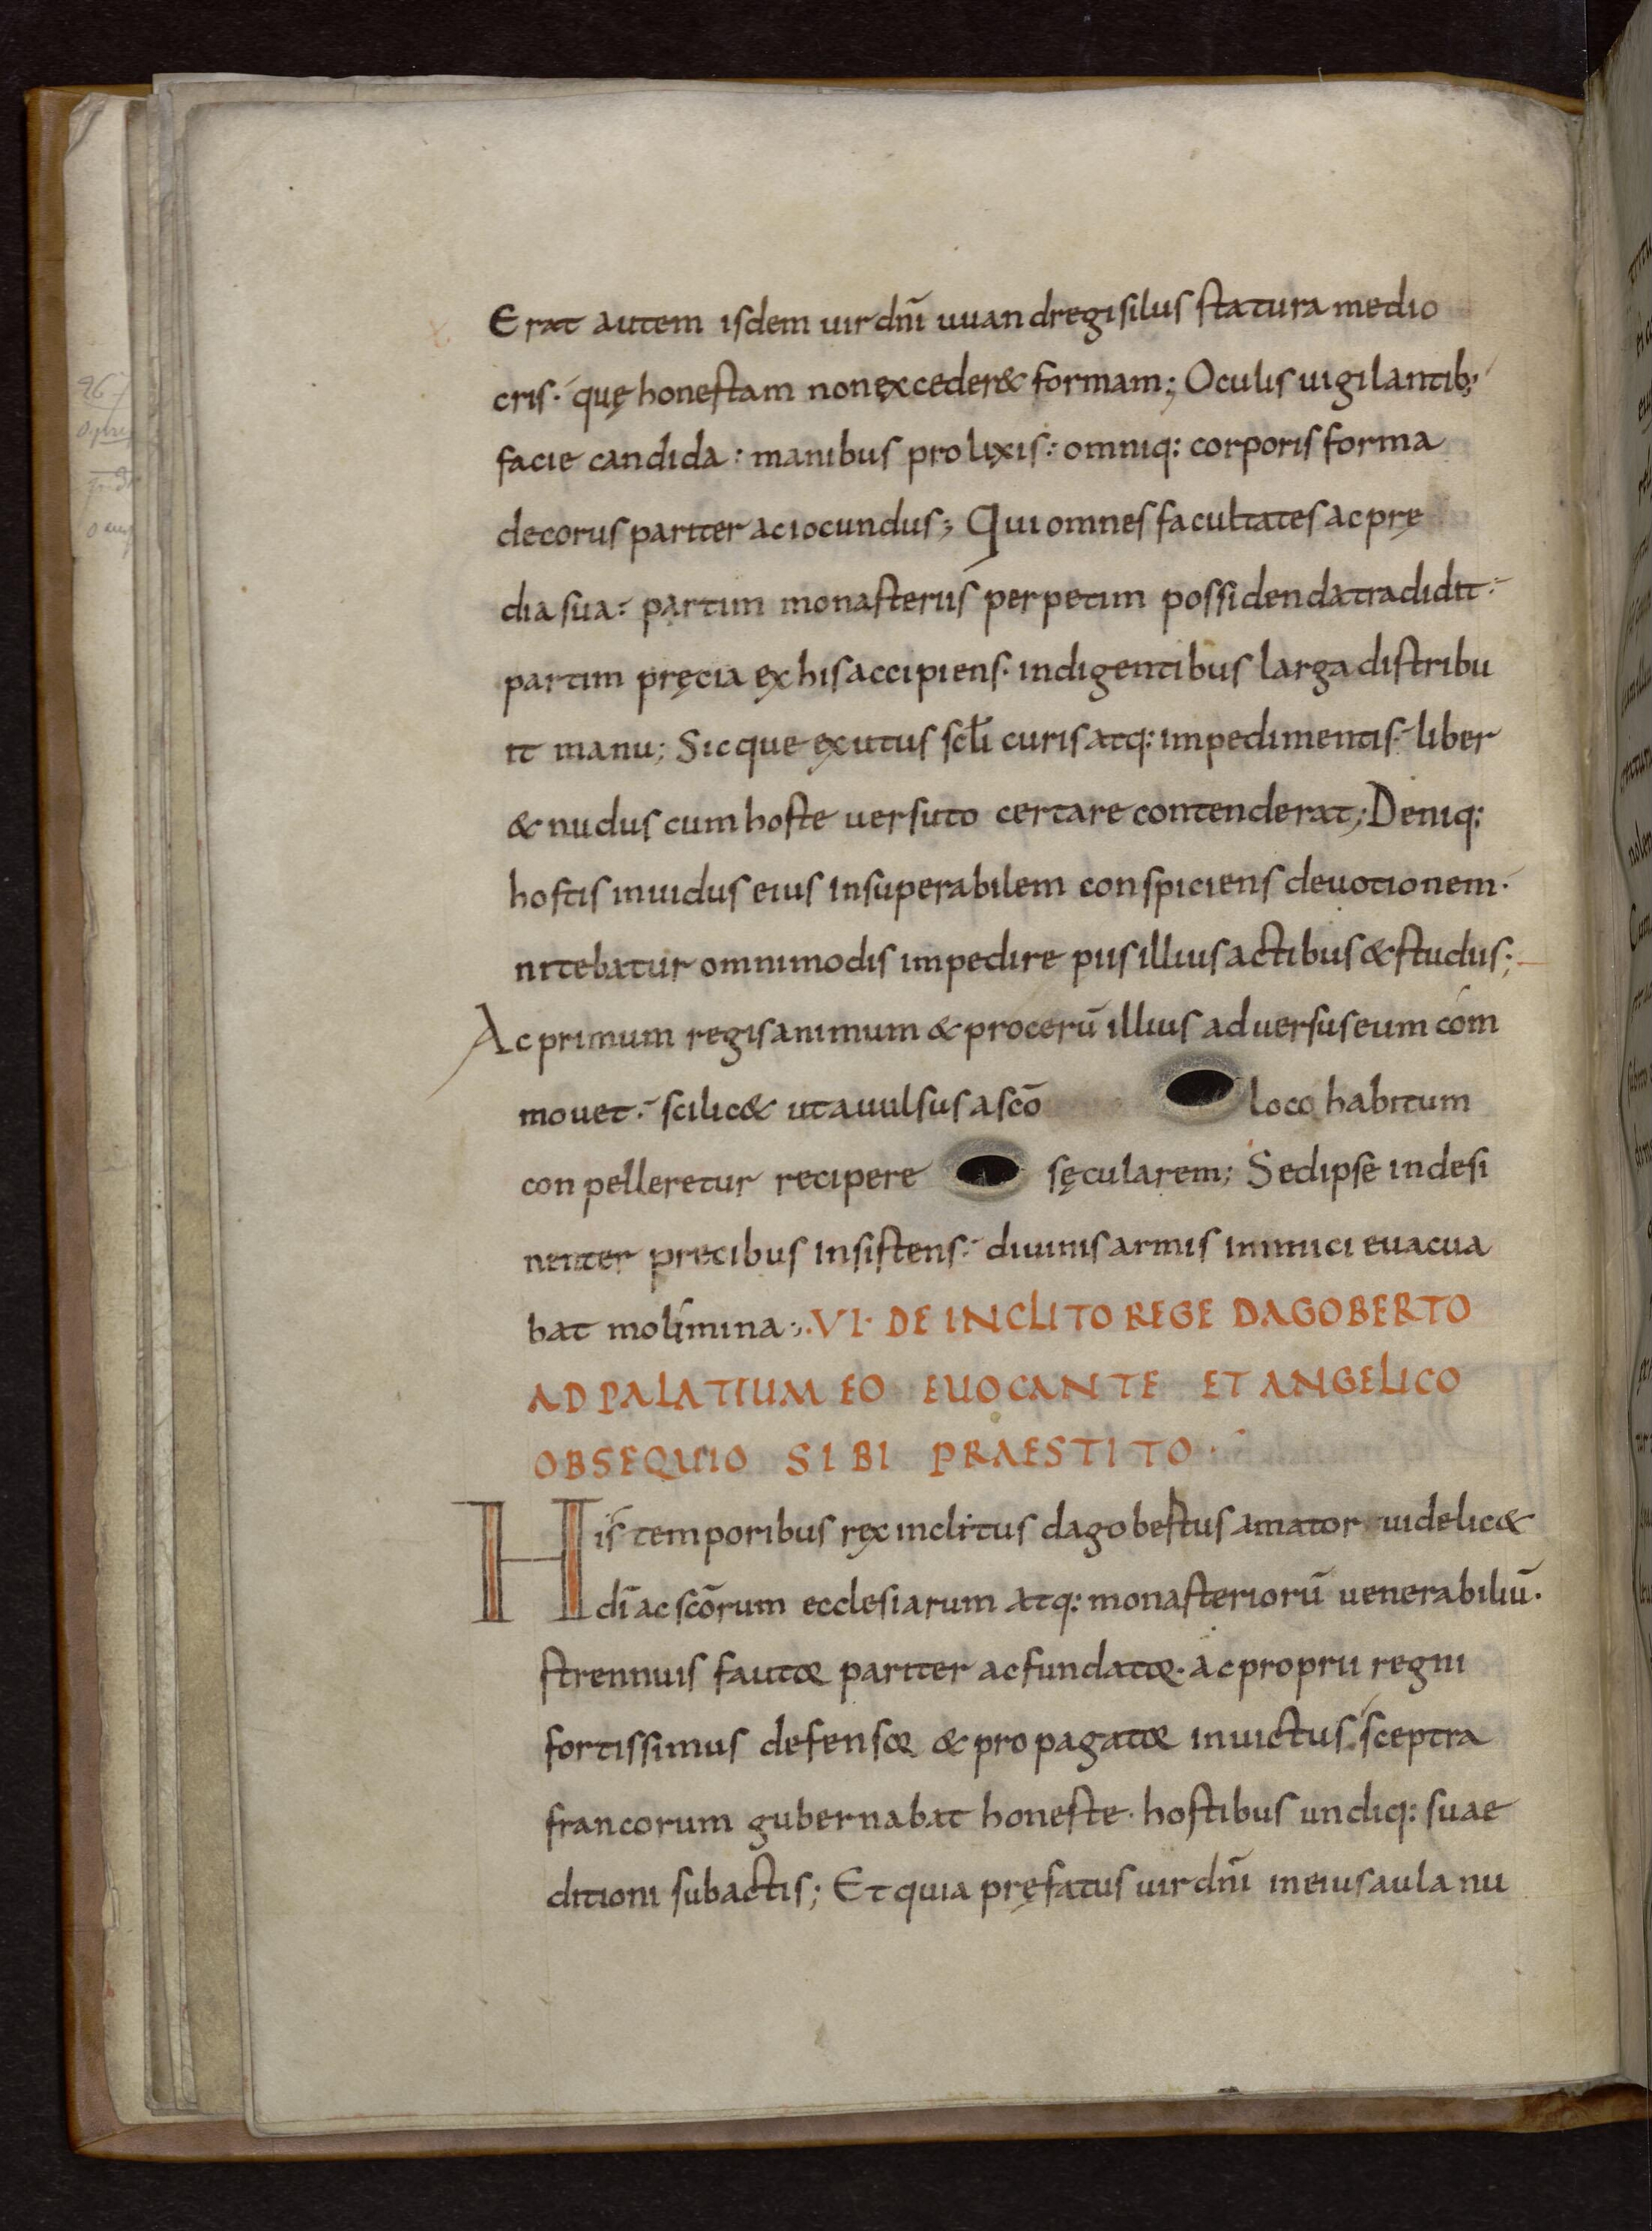 Erat autem isdem uir dn̄i uuandregisilus statura medio
cris· quę honestam non exceder& formam; Oculis uigilantib;
facie candida: manibus prolixis: omniq: corporis forma
decorus pariter ac iocundus; Qui omnes facultates ac prę
dia sua: partim monasteriis perpetim possidenda tradidit:
partim pręcia ex his accipiens· indigentibus larga distribu
it manu; Sicque exutus scl̄i curis atq: impedimentis: liber
& nudus cum hoste uersuto certare contenderat; Deniq:
hostis inuidus eius insuperabilem conspiciens deuotionem·
nitebatur omnimodis impedire piis illius actibus & studiis;
Ac primum regis animum & procerū illius aduersus eum com
mouet: scilic& ut auulsus a scō loco habitum
conpelleretur recipere sęcularem; Sed ipse indesi
nenter precibus insistens: diuinis armis inimici euacua
bat molimina; VI· DE INCLITO REGE DAGOBERTO
AD PALATIUM EO EUOCANTE ET ANGELICO
OBSEQUIO SIBI PRAESTITO·
His temporibus rex inclitus dagobertus amator uidelic&
dī ac scōrum ecclesiarum atq: monasteriorū uenerabiliū·
strennuis fautor pariter ac fundator· ac proprii regni
fortissimus defensor & propagator inuictus· sceptra
francorum gubernabat honeste· hostibus undiq: suae
ditioni subactis; Et quia pręfatus uir dn̄i in eius aula nu